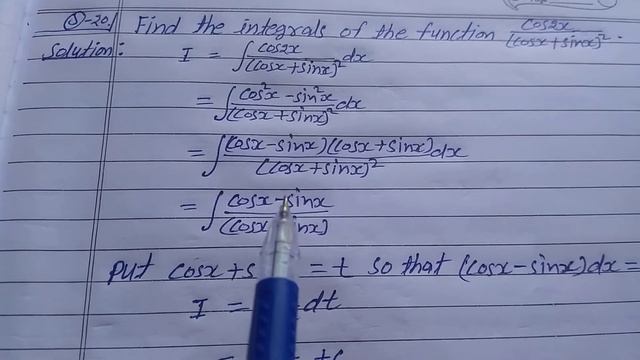 Q-20. Find the integrals of the function cos2x/(cosx+sinx)².
Solution: I = ∫ cos2x/(cosx+sinx)² dx
= ∫ cos²x - sin²x/(cosx+sinx)² dx
= ∫ (cosx-sinx)(cosx+sinx)/(cosx+sinx)² dx
= ∫ cosx-sinx/(cosx inx)
Put cosx+s =t so that (cosx-sinx)dx=
I = dt
=